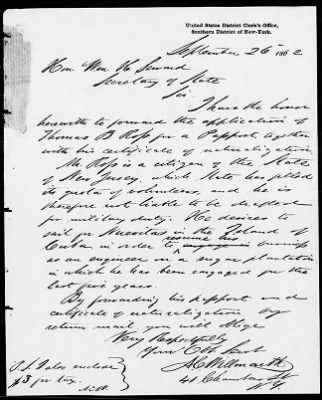 United States District Clerk's Office,
Southern District of New-York.
September 26th 1862
Hon Wm H. Seward
Secretary of State
Sir
I have the honor
herewith to forward the application of
Thomas B Ross for a Passport, together
with his certificate of naturalization,
Mr. Ross is a citizen of the State
of New Jersey, which State has filled
its quota of volunteers, and he is
therefore not liable to be drafted
for military duty. He desires to
sail for Nuevitas in the Island of
Cuba in order to resume his business
as an engineer on a sugar plantation
in which he has been engaged for the
last five years.
By forwarding his passport and
certificate of naturalization by
return mail you will oblige
Very Respectfully
Your Obt Servt
A C Willmarth
41 Chambers St
N. Y.
P.S. I also enclose
$3 for tax.
ACW.